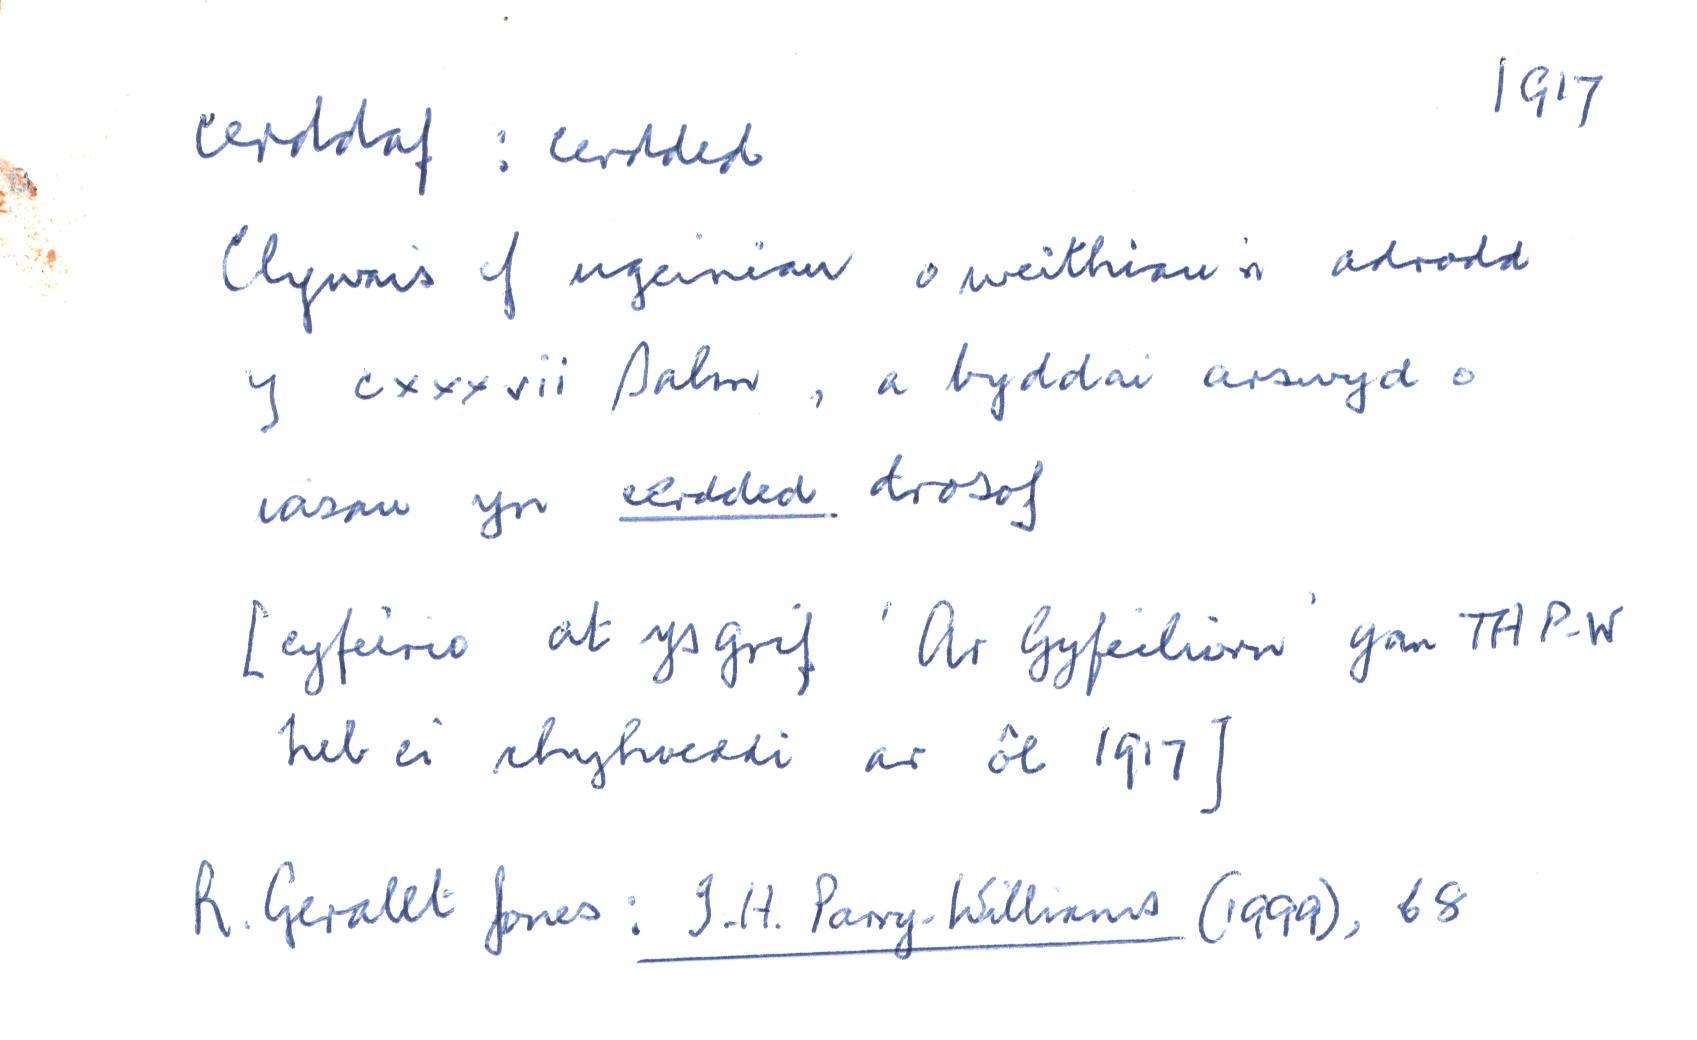 1917
cerddaf : cerdded
Clywais ef ugeiniau o weithiau'n adrodd
y cxxxvii Salm, a byddai arswyd o
iasau yn cerdded drosof
[cyfeirio at ysgrif 'Ar Gyfeiliorn' gan THP-W
heb ei chyhoeddi ar ôl 1917]
R. Gerallt Jones: T.H. Parry-Williams (1999), 68